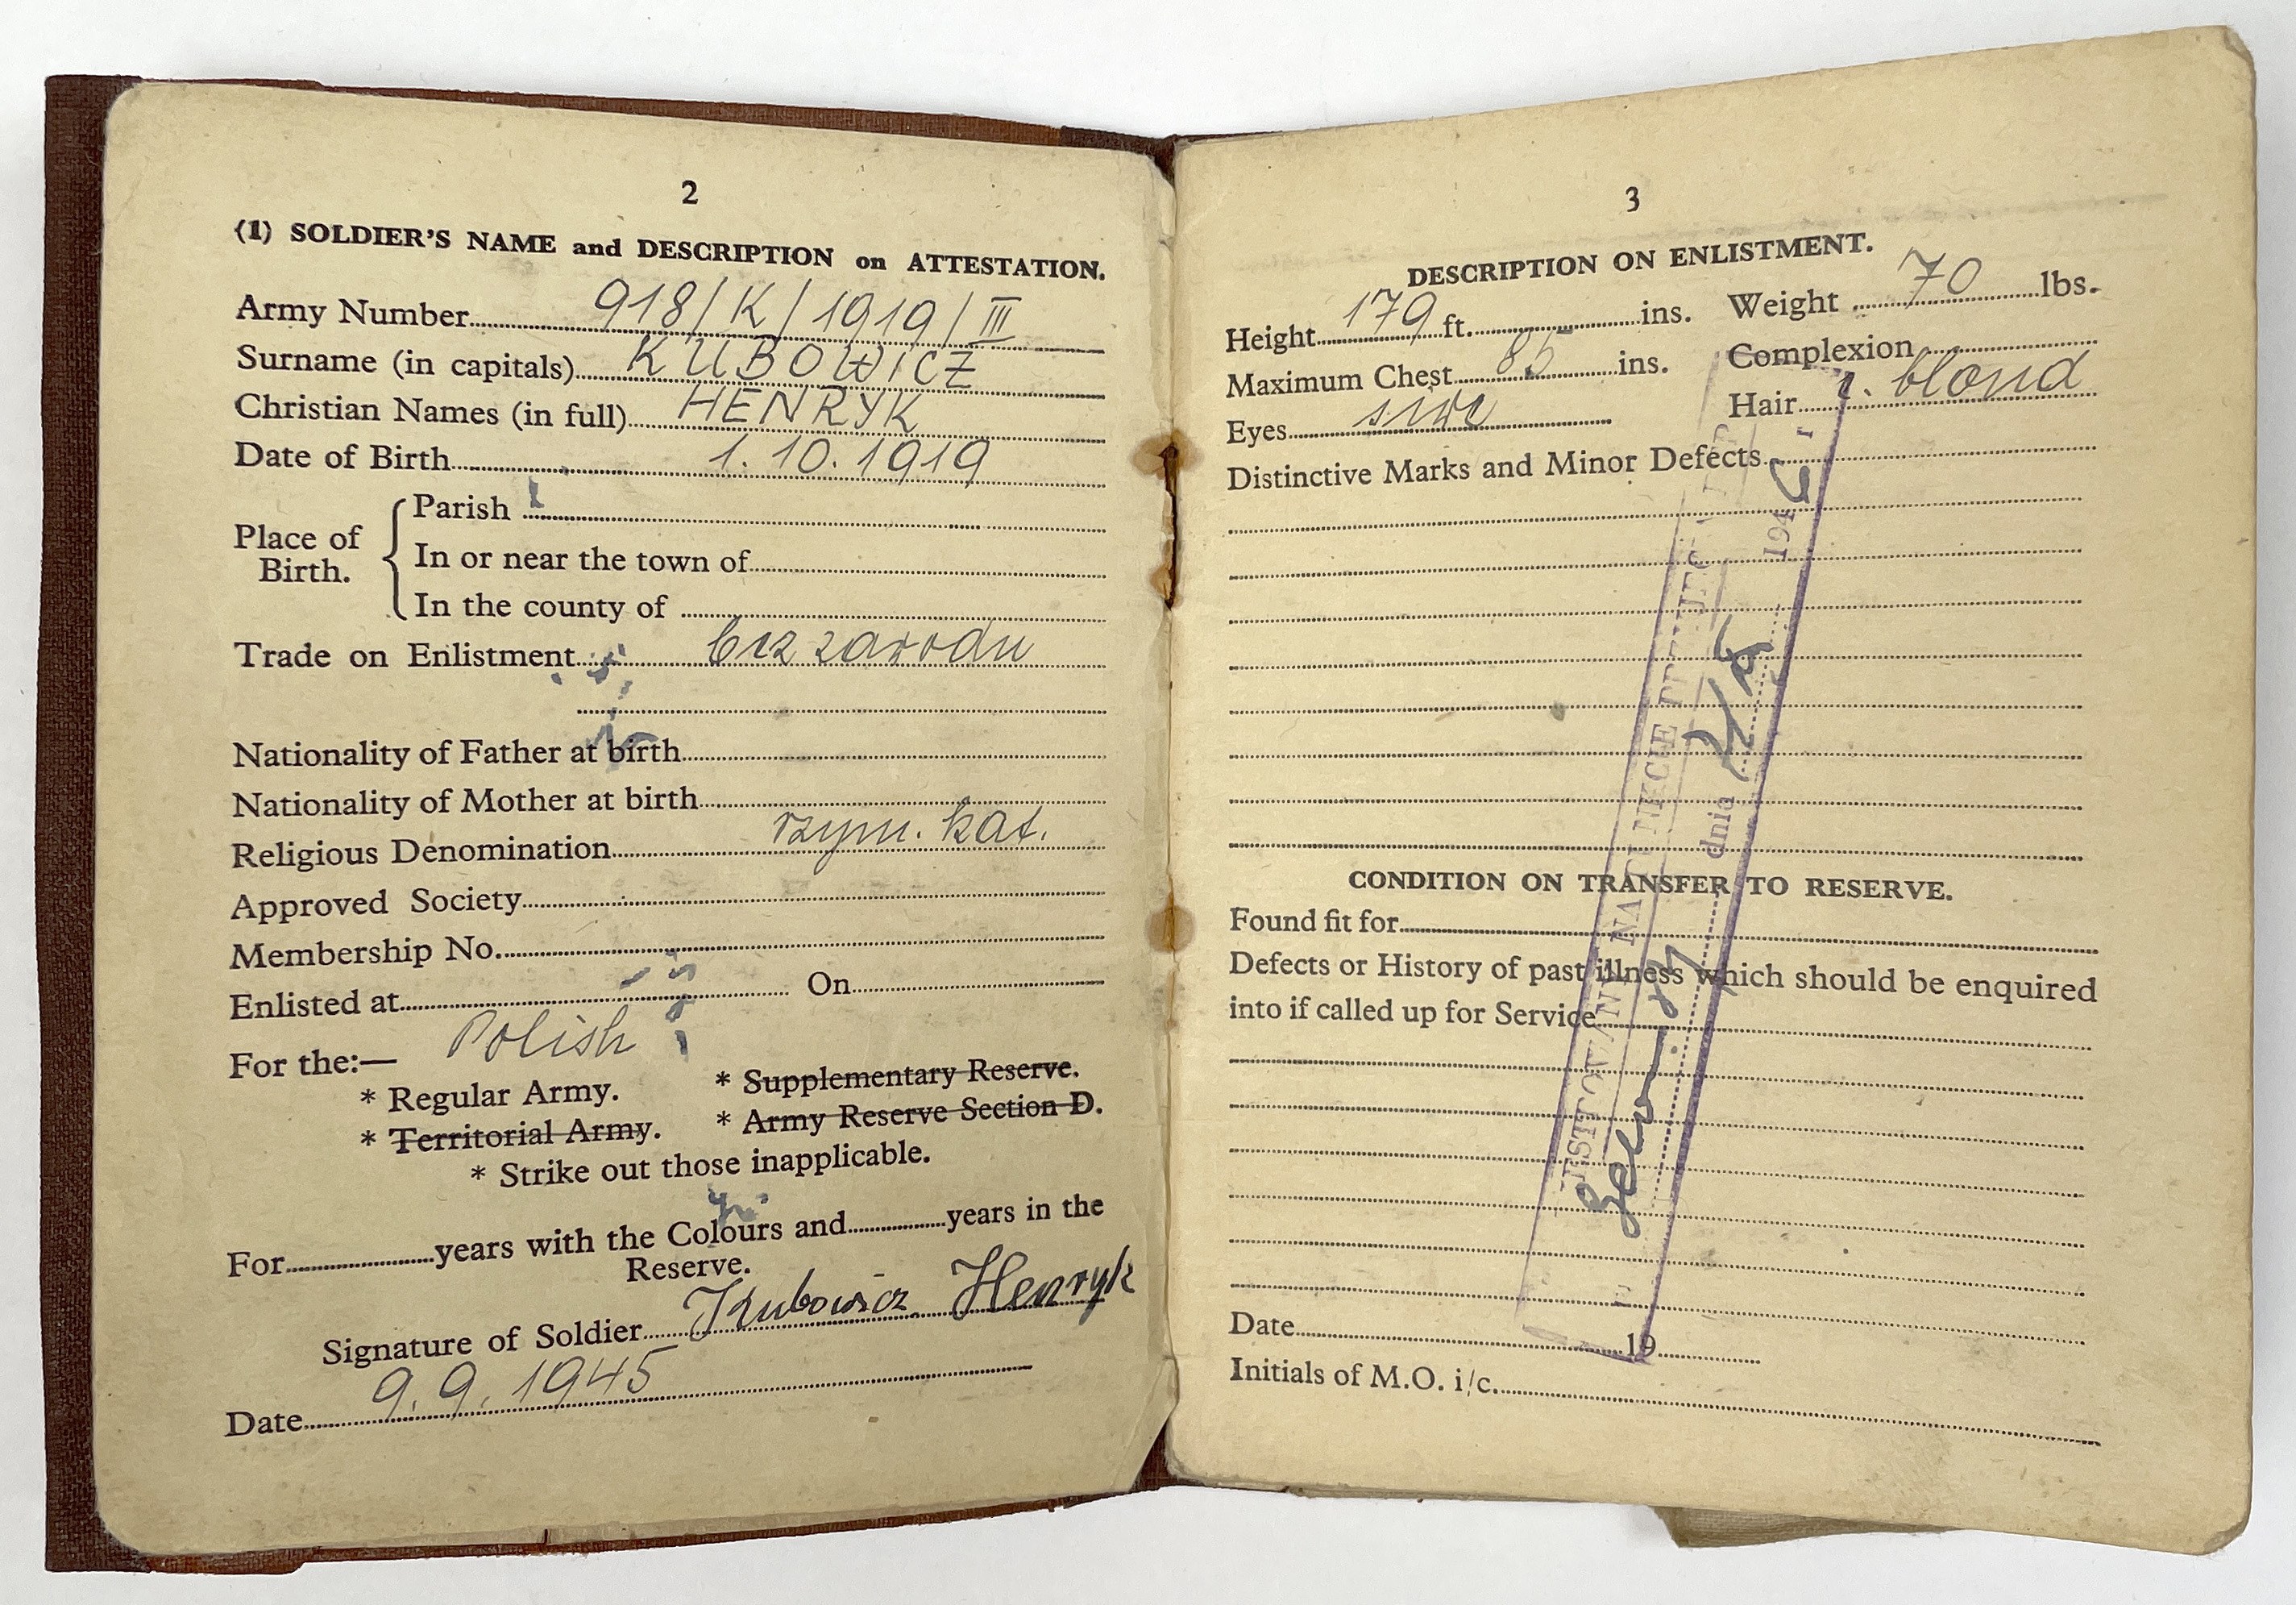 2
(1) SOLDIER'S NAME and DESCRIPTION on ATTESTATION.
Army Number 918/K/1919/III
Surname (in capitals) KUBOWICZ
Christian Names (in full) HENRYK
Date of Birth 1.10.1919
Place of Birth.
Parish
In or near the town of
In the county of
Trade on Enlistment bez zawodu
Nationality of Father at birth
Nationality of Mother at birth
Religious Denomination rzym. kat.
Approved Society
Membership No.
Enlisted at On
For the:— Polish
* Regular Army. * Supplementary Reserve.
* Territorial Army. * Army Reserve Section D.
* Strike out those inapplicable.
For years with the Colours and years in the
Reserve.
Signature of Soldier Kubowicz Henryk
Date 9.9.1945
3
DESCRIPTION ON ENLISTMENT.
Height 179 ft. ins. Weight 70 lbs.
Maximum Chest 85 ins. Complexion
Eyes siwe Hair c. blond
Distinctive Marks and Minor Defects
CONDITION ON TRANSFER TO RESERVE.
Found fit for
Defects or History of past illness which should be enquired
into if called up for Service
Date 19
Initials of M.O. i/c.
dnia 194